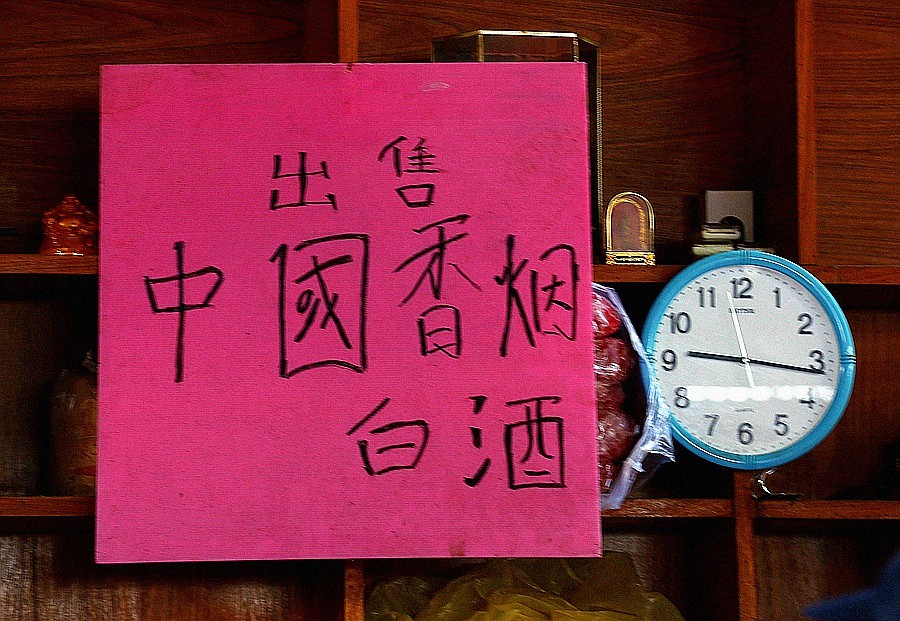 出售
中國香烟
白酒
12
1
2
3
4
5
6
7
8
9
10
11